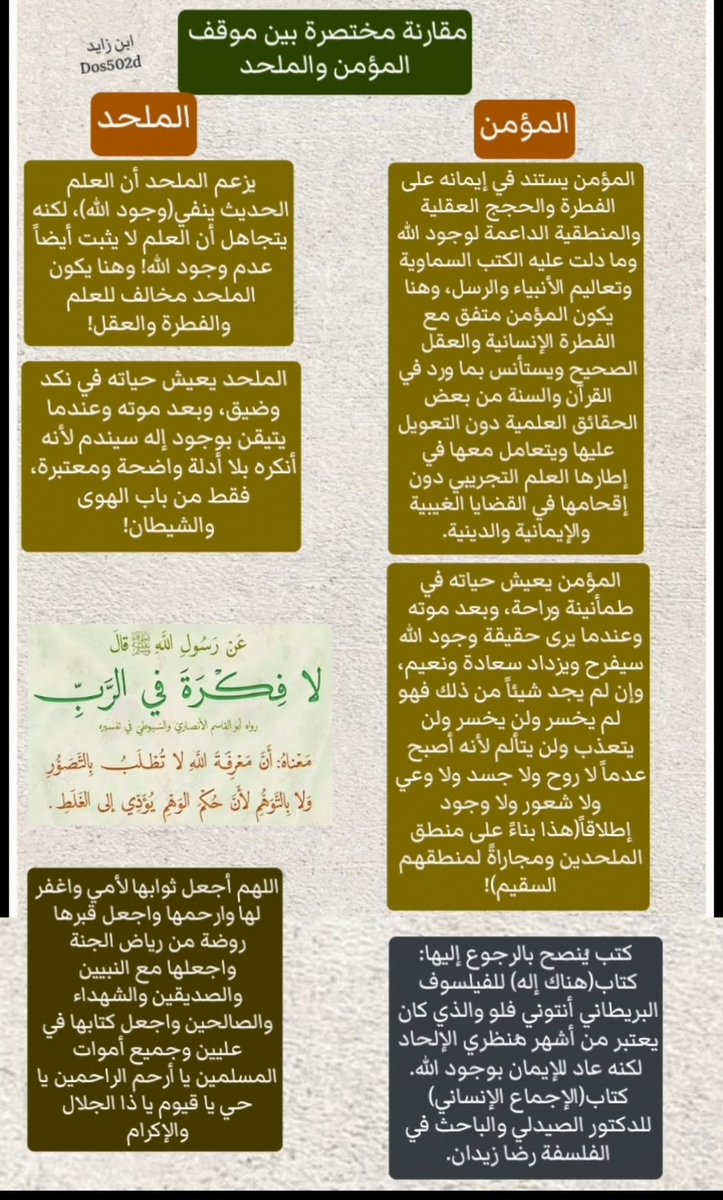 مقارنة مختصرة بين موقف
المؤمن والملحد
ابن زايد
Dos502d
المؤمن
المؤمن يستند في إيمانه على
الفطرة والحجج العقلية
والمنطقية الداعمة لوجود الله
وما دلت عليه الكتب السماوية
وتعاليم الأنبياء والرسل، وهنا
يكون المؤمن متفق مع
الفطرة الإنسانية والعقل
الصحيح ويستأنس بما ورد في
القرآن والسنة من بعض
الحقائق العلمية دون التعويل
عليها ويتعامل معها في
إطارها العلم التجريبي دون
إقحامها في القضايا الغيبية
والإيمانية والدينية.
المؤمن يعيش حياته في
طمأنينة وراحة، وبعد موته
وعندما يرى حقيقة وجود الله
سيفرح ويزداد سعادة ونعيم،
وإن لم يجد شيئاً من ذلك فهو
لم يخسر ولن يخسر ولن
يتعذب ولن يتألم لأنه أصبح
عدماً لا روح ولا جسد ولا وعي
ولا شعور ولا وجود
إطلاقاً(هذا بناءً على منطق
الملحدين ومجاراةً لمنطقهم
السقيم)!
كتب يُنصح بالرجوع إليها:
كتاب(هناك إله) للفيلسوف
البريطاني أنتوني فلو والذي كان
يعتبر من أشهر منظري الإلحاد
لكنه عاد للإيمان بوجود الله.
كتاب(الإجماع الإنساني)
للدكتور الصيدلي والباحث في
الفلسفة رضا زيدان.
الملحد
يزعم الملحد أن العلم
الحديث ينفي(وجود الله)، لكنه
يتجاهل أن العلم لا يثبت أيضاً
عدم وجود الله! وهنا يكون
الملحد مخالف للعلم
والفطرة والعقل!
الملحد يعيش حياته في نكد
وضيق، وبعد موته وعندما
يتيقن بوجود إله سيندم لأنه
أنكره بلا أدلة واضحة ومعتبرة،
فقط من باب الهوى
والشيطان!
عَنْ رَسُولِ اللَّهِ ﷺ قَالَ
لا فِكْرَةَ فِي الرَّبِّ
رواه أبو القاسم الأنصاري والسيوطي في تفسيره
مَعْنَاهُ: أَنَّ مَعْرِفَةَ اللَّهِ لا تُطْلَبُ بِالتَّصَوُّرِ
وَلا بِالتَّوَهُّمِ لأَنَّ حُكْمَ الوَهْمِ يُؤَدِّي إِلى الغَلَطِ.
اللهم أجعل ثوابها لأمي واغفر
لها وارحمها واجعل قبرها
روضة من رياض الجنة
واجعلها مع النبيين
والصديقين والشهداء
والصالحين واجعل كتابها في
عليين وجميع أموات
المسلمين يا أرحم الراحمين يا
حي يا قيوم يا ذا الجلال
والإكرام